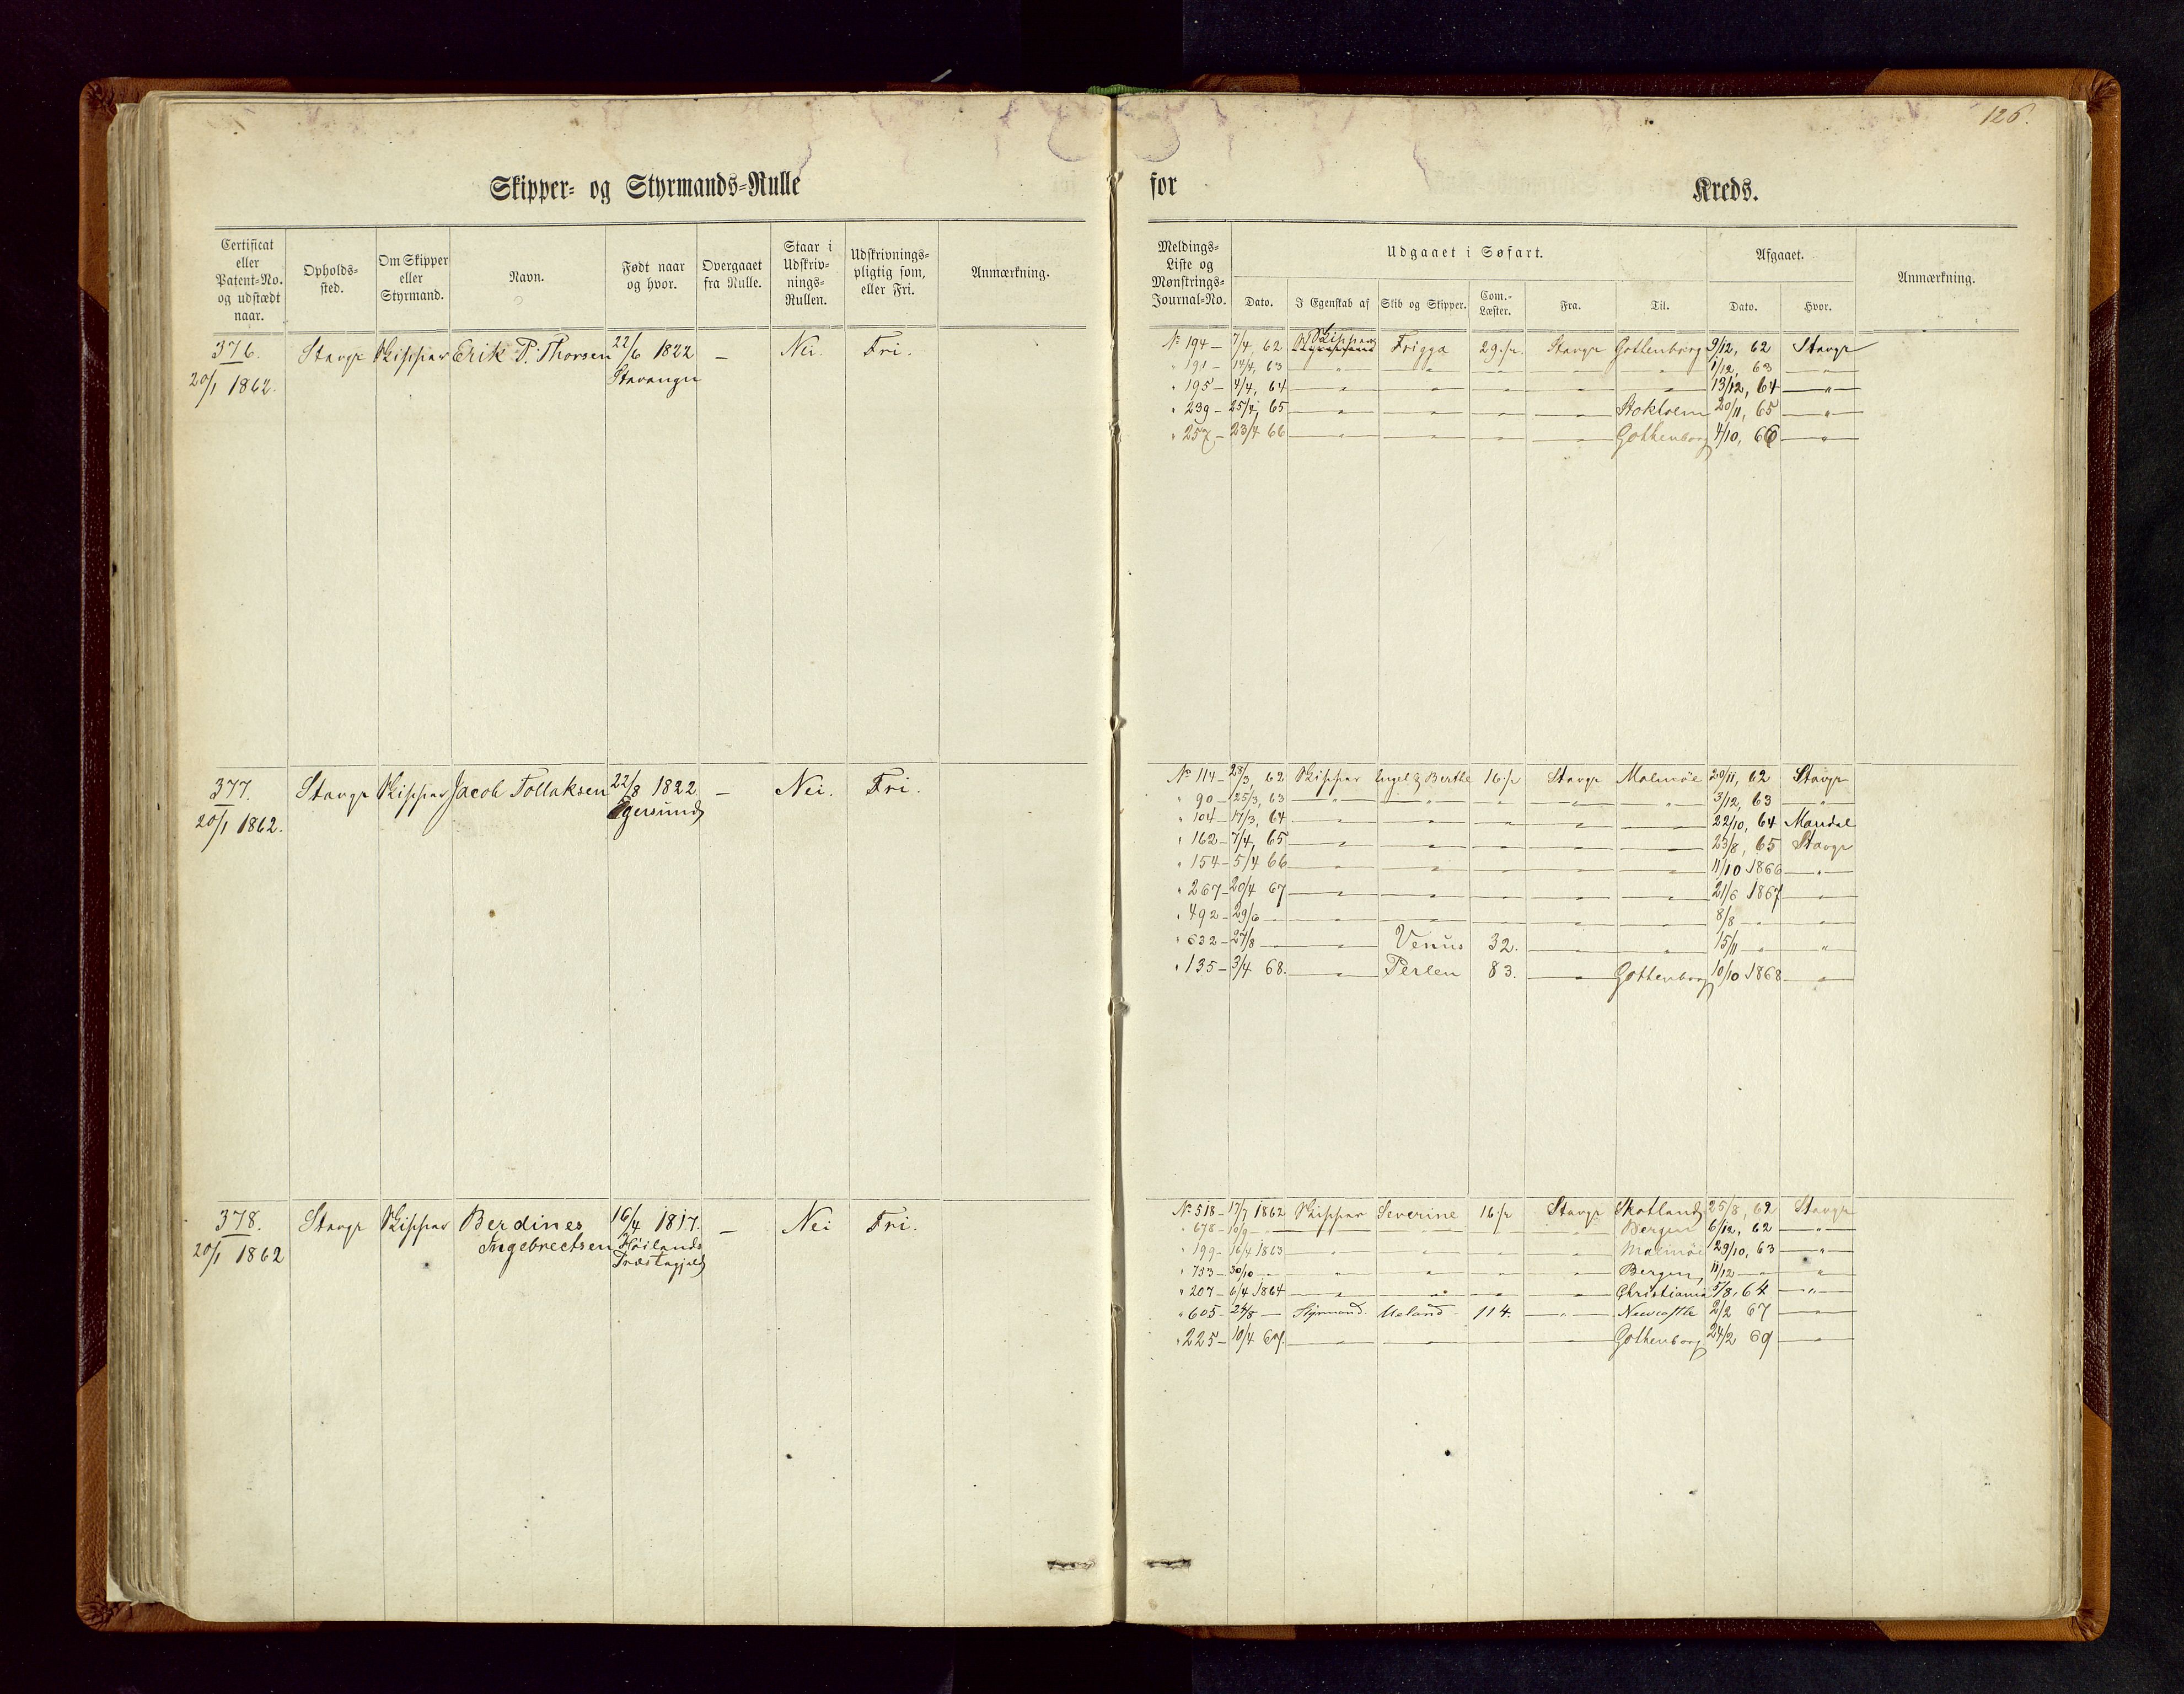 126.
Skipper- og Styrmands-Rulle for Kreds.
Certificat eller Patent-No. og udstædt naar. Opholds-sted. Om Skipper eller Styrmand. Navn. Født naar og hvor. Overgaaet fra Rulle. Staar i Udskriv-nings-Rullen. Udskrivnings-pligtig som, eller Fri. Anmærkning.
Meldings-Liste og Mønstrings-Journal-No. Udgaaet i Søfart. Afgaaet. Anmærkning.
Dato. I Egenskab af Skib og Skipper. Com.-Læster. Fra. Til. Dato. Hvor.
376. Stavgr Skipper Erik P. Thorsen 22/6 1822 — Nei. Fri.
20/1 1862. Stavanger
No 194 — 7/4, 62 Skipper Frigga 29 Stavgr Gottenborg 9/12, 62 Stavgr
" 191 — 14/4, 63 — " — — " — — " — — " — — " — 1/12, 63 — " —
" 195 — 4/4, 64 — " — — " — — " — — " — — " — 13/12, 64 — " —
" 239 — 25/4, 65 — " — — " — — " — — " — Stokholm 20/11, 65 — " —
" 257 — 23/4 66 — " — — " — — " — — " — Gothenborg 4/10, 66 — " —
377. Stavgr Skipper Jacob Tollaksen 22/8 1822 — Nei. Fri.
20/1 1862. Egersund
No 114 — 28/3, 62 Skipper Engel & Berthe 16 Stavgr Malmöe 20/11, 62 Stavgr
" 90 — 25/3, 63 — " — — " — — " — — " — — " — 3/12, 63 — " —
" 104 — 17/3, 64 — " — — " — — " — — " — — " — 22/10, 64 Mandal
" 162 — 7/4, 65 — " — — " — — " — — " — — " — 23/8, 65 Stavgr
" 154 — 5/4 66 — " — — " — — " — — " — — " — 11/10 1866 — " —
" 267 — 20/4 67 — " — — " — — " — — " — — " — 21/6 1867 — " —
" 492 — 29/6 — — " — — " — — " — — " — — " — 8/8 — " — — " —
" 632 — 27/8 — — " — Venus 32. — " — — " — 15/11 — " — — " —
" 135 — 3/4 68. — " — Perlen 83. — " — Gothenborg 10/10 1868 — " —
378. Stavgr Skipper Berdines 16/4 1817. — Nei Fri.
20/1 1862 Ingebrectsen Höilands
Præstegjeld
No 518 — 17/7 1862 Skipper Severine 16 Stavgr Skotland 25/8, 62 Stavgr
" 678 — 10/9 — — " — — " — — " — — " — Bergen 6/12, 62 — " —
" 199 — 16/4 1863 — " — — " — — " — — " — Malmöe 29/10, 63 — " —
" 753 — 30/10 — — " — — " — — " — — " — Bergen 11/12 — " — — " —
" 207 — 6/4 1864 — " — — " — — " — — " — Christiania 5/8, 64 — " —
" 605 — 24/8 — Styrmand Ueland 114. — " — Newcastle 2/2 67 — " —
" 225 — 10/4 67. — " — — " — — " — — " — Gothenborg 24/2 69 — " —